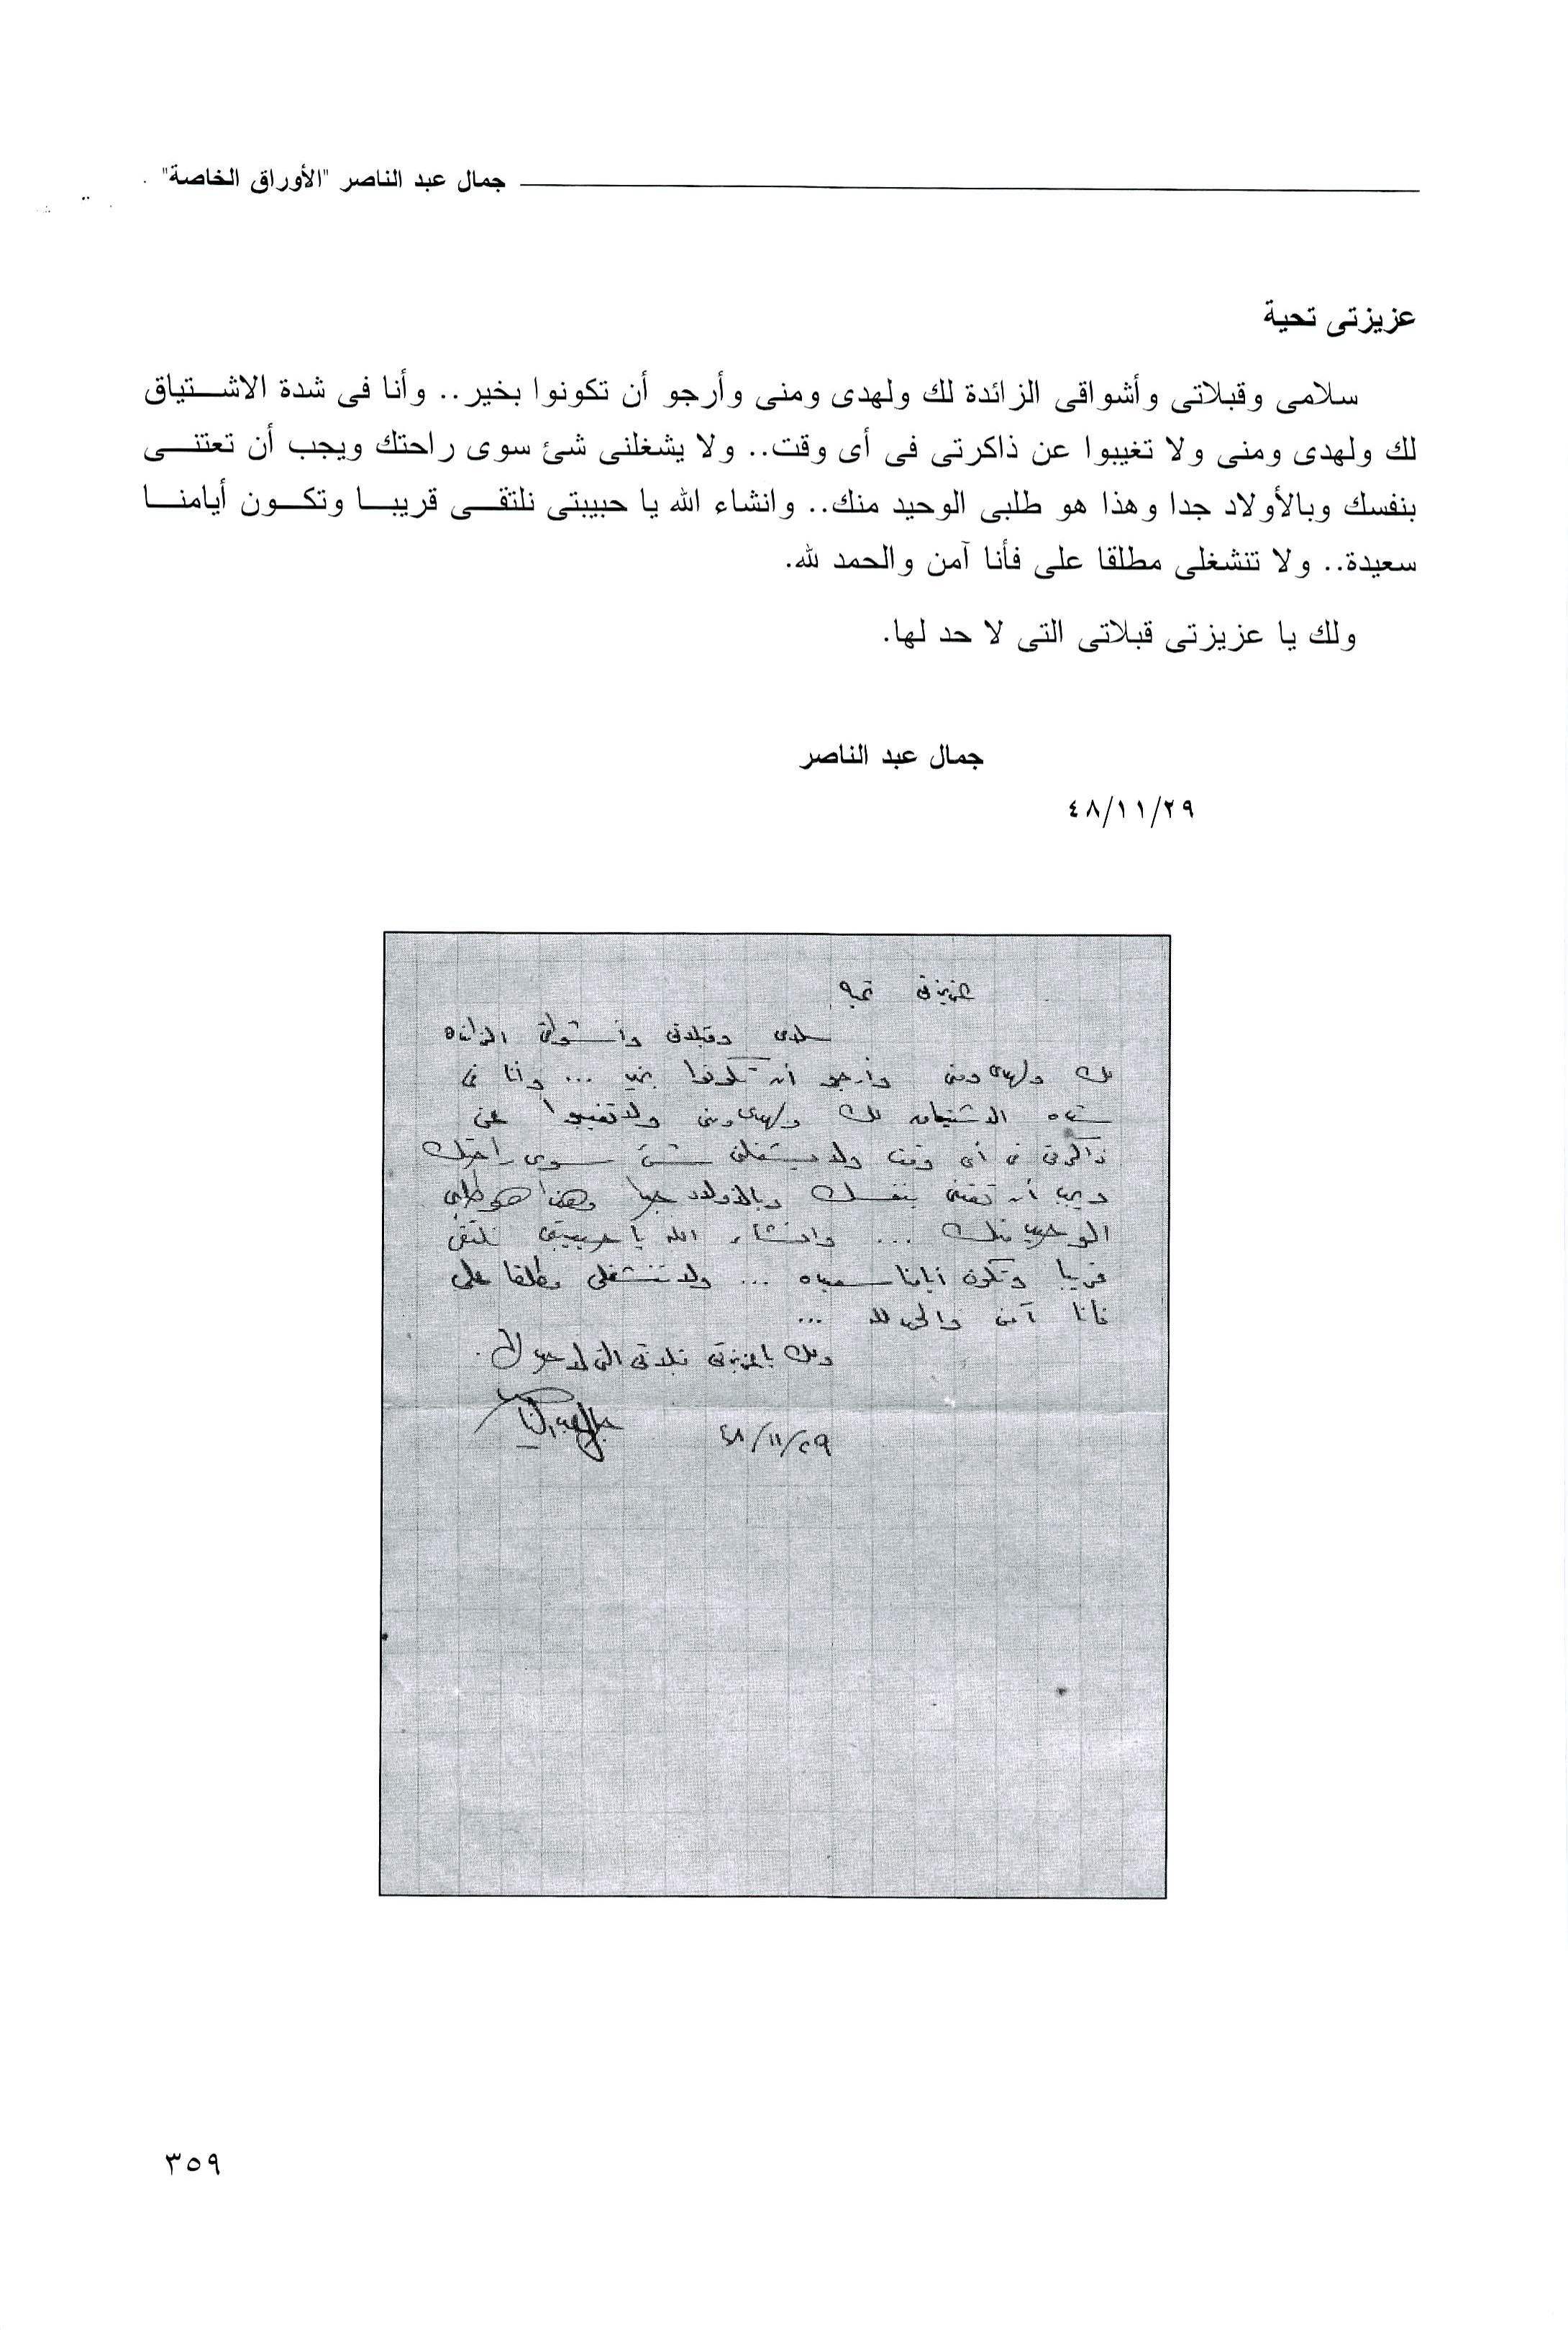 جمال عبد الناصر "الأوراق الخاصة"
عزيزتى تحية
سلامى وقبلاتى وأشواقى الزائدة لك ولهدى ومنى وأرجو أن تكونوا بخير.. وأنا فى شدة الاشتياق
لك ولهدى ومنى ولا تغيبوا عن ذاكرتى فى أى وقت.. ولا يشغلنى شئ سوى راحتك ويجب أن تعتنى
بنفسك وبالأولاد جدا وهذا هو طلبى الوحيد منك.. وانشاء الله يا حبيبتى نلتقى قريبا وتكون أيامنا
سعيدة.. ولا تنشغلى مطلقا على فأنا آمن والحمد لله.
ولك يا عزيزتى قبلاتى التى لا حد لها.
جمال عبد الناصر
٤٨/١١/٢٩
عزيزتى تحيه
سلامى وقبلاتى وأشواقى الزائده
لك ولهدى ومنى وأرجو أن تكونوا بخير ... وأنا فى
شدة الاشتياق لك ولهدى ومنى ولا تغيبوا عن
ذاكرتى فى أى وقت ولا يشغلنى شئ سوى راحتك
ويجب أن تعتنى بنفسك وبالأولاد جدا وهذا هو طلبى
الوحيد منك ... وانشاء الله يا حبيبتى نلتقى
قريبا وتكون أيامنا سعيده ... ولا تنشغلى مطلقا على
فأنا آمن والحمد لله ...
ولك يا عزيزتى قبلاتى التى لا حد لها.
جمال عبد الناصر
٤٨/١١/٢٩
٣٥٩